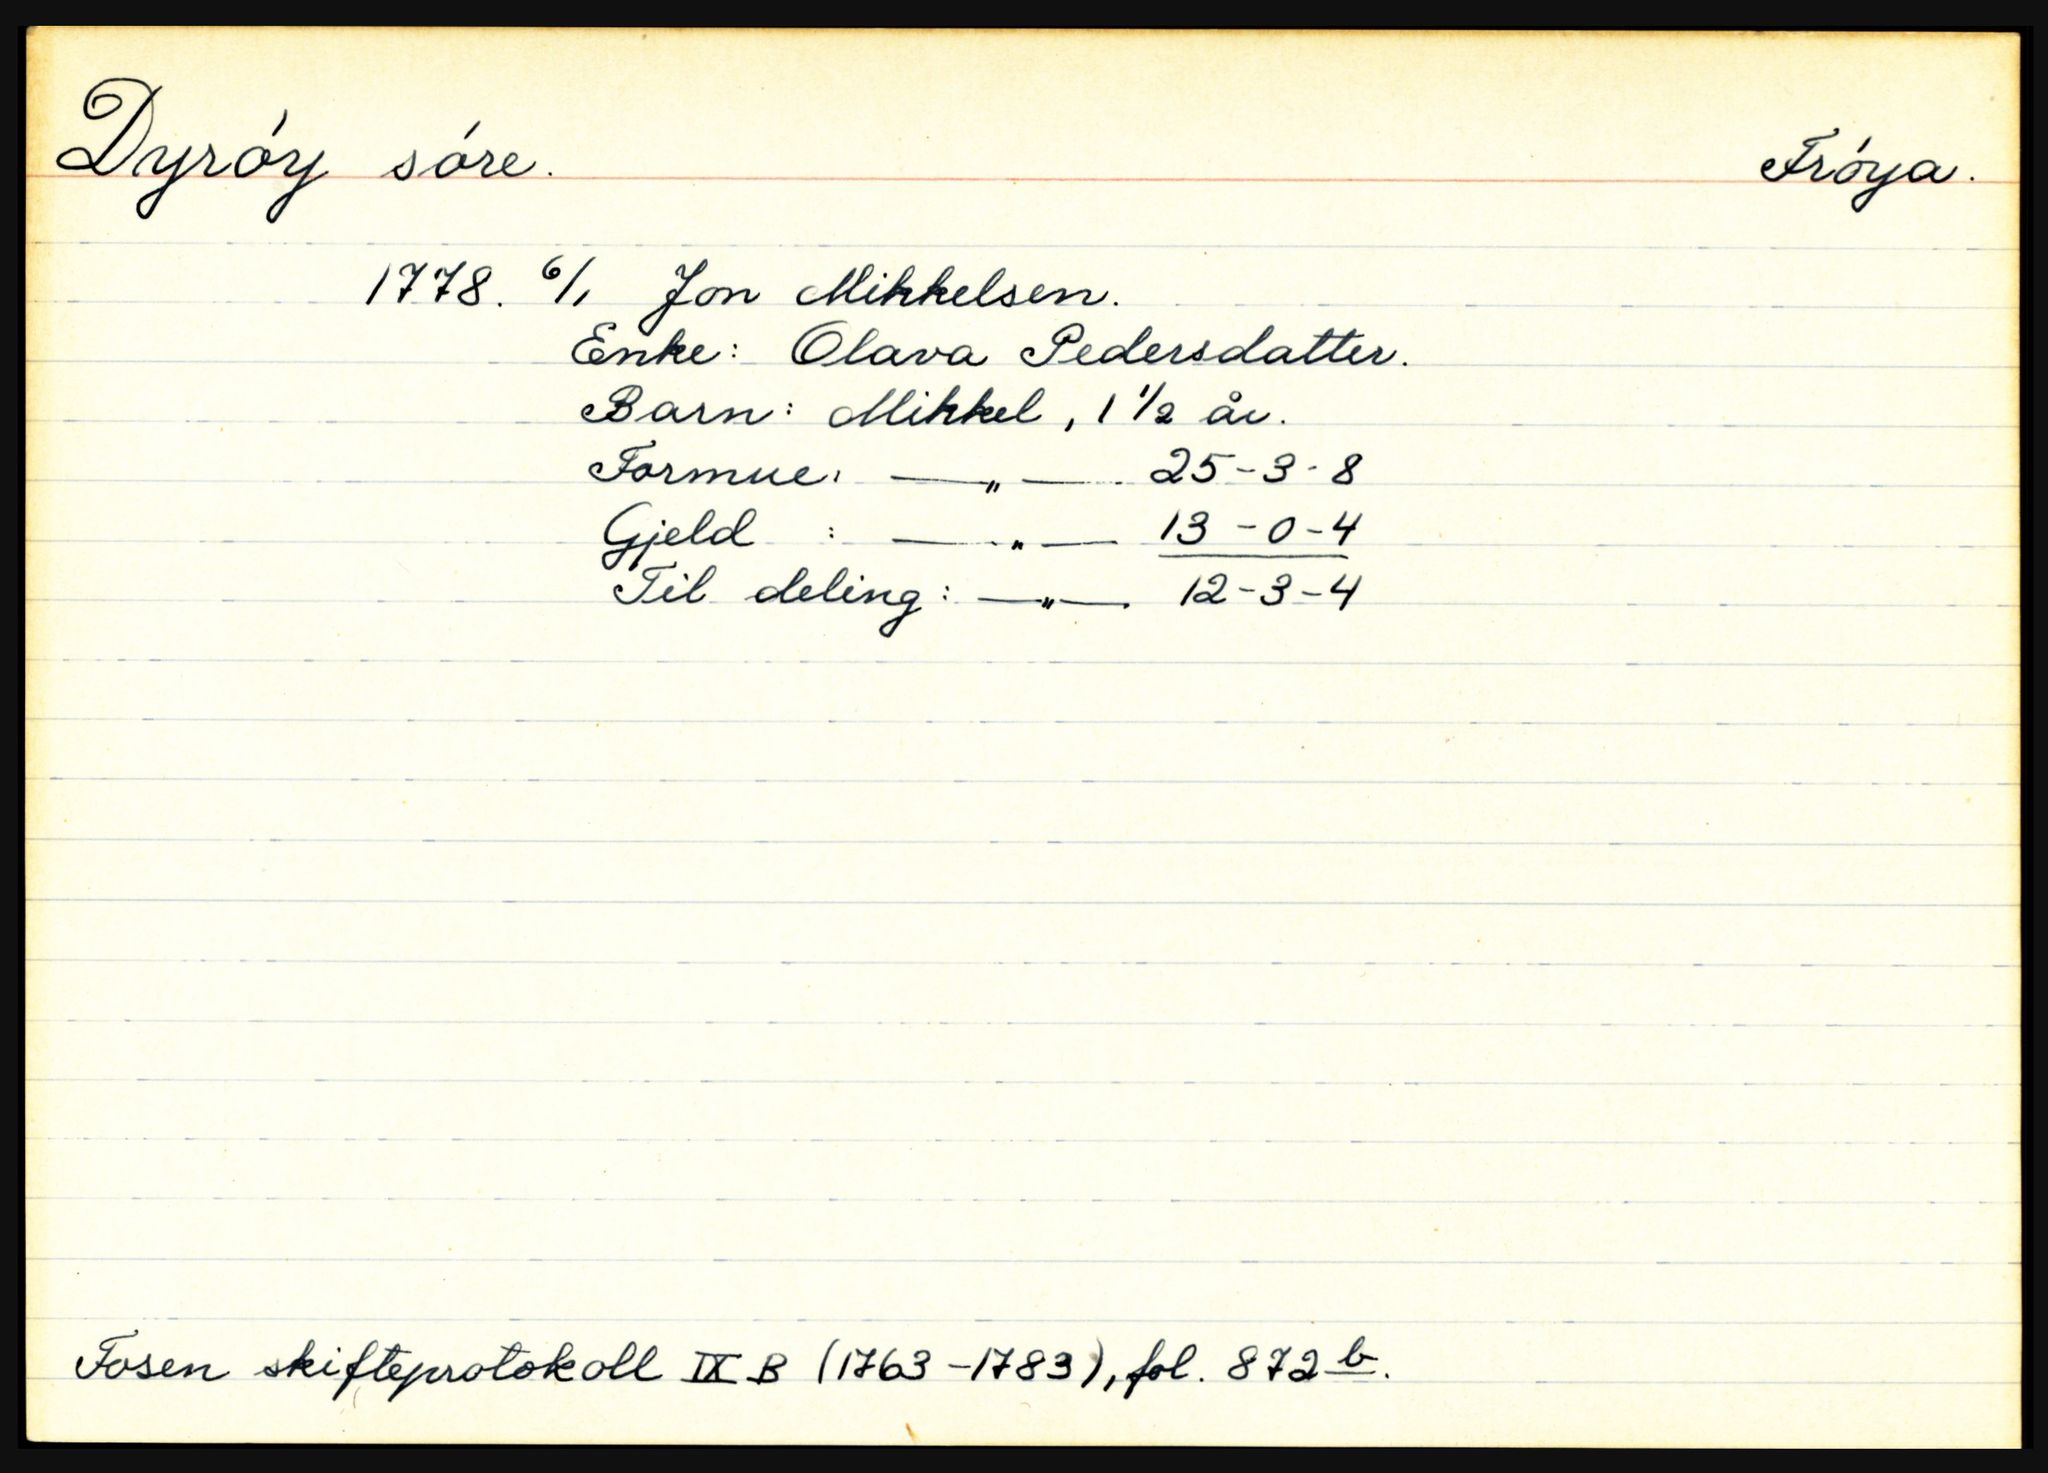 Dyróy sóre. Fróya.
1778. 6/1 Jon Mikkelsen.
Enke: Olava Pedersdatter.
Barn: Mikkel, 1 1/2 år.
Formue: —"— 25-3-8
Gjeld : —"— 13-0-4
Til deling: —"— 12-3-4
Fosen skifteprotokoll IX B (1763-1783), fol. 872 b.